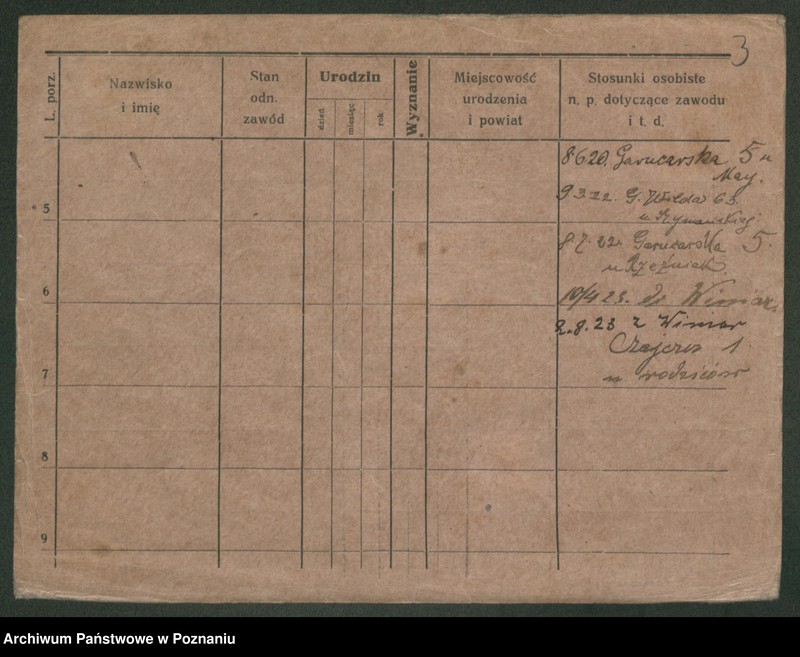 3
L. porz.
Nazwisko
i imię
Stan
odn.
zawód
Urodzin
dzień
miesiąc
rok
Wyznanie
Miejscowość
urodzenia
i powiat
Stosunki osobiste
n. p. dotyczące zawodu
i t. d.
8.6.20. Garncarska 5 u
May.
9.3.22. G. Wilda 63.
u Szymańskiej
5
8.7.22. Garncarska 5.
u Rzeźniak
6
10/4 23. do Winiar.
2.8.23 z Winiar
1
u rodziców
7
8
9
Archiwum Państwowe w Poznaniu